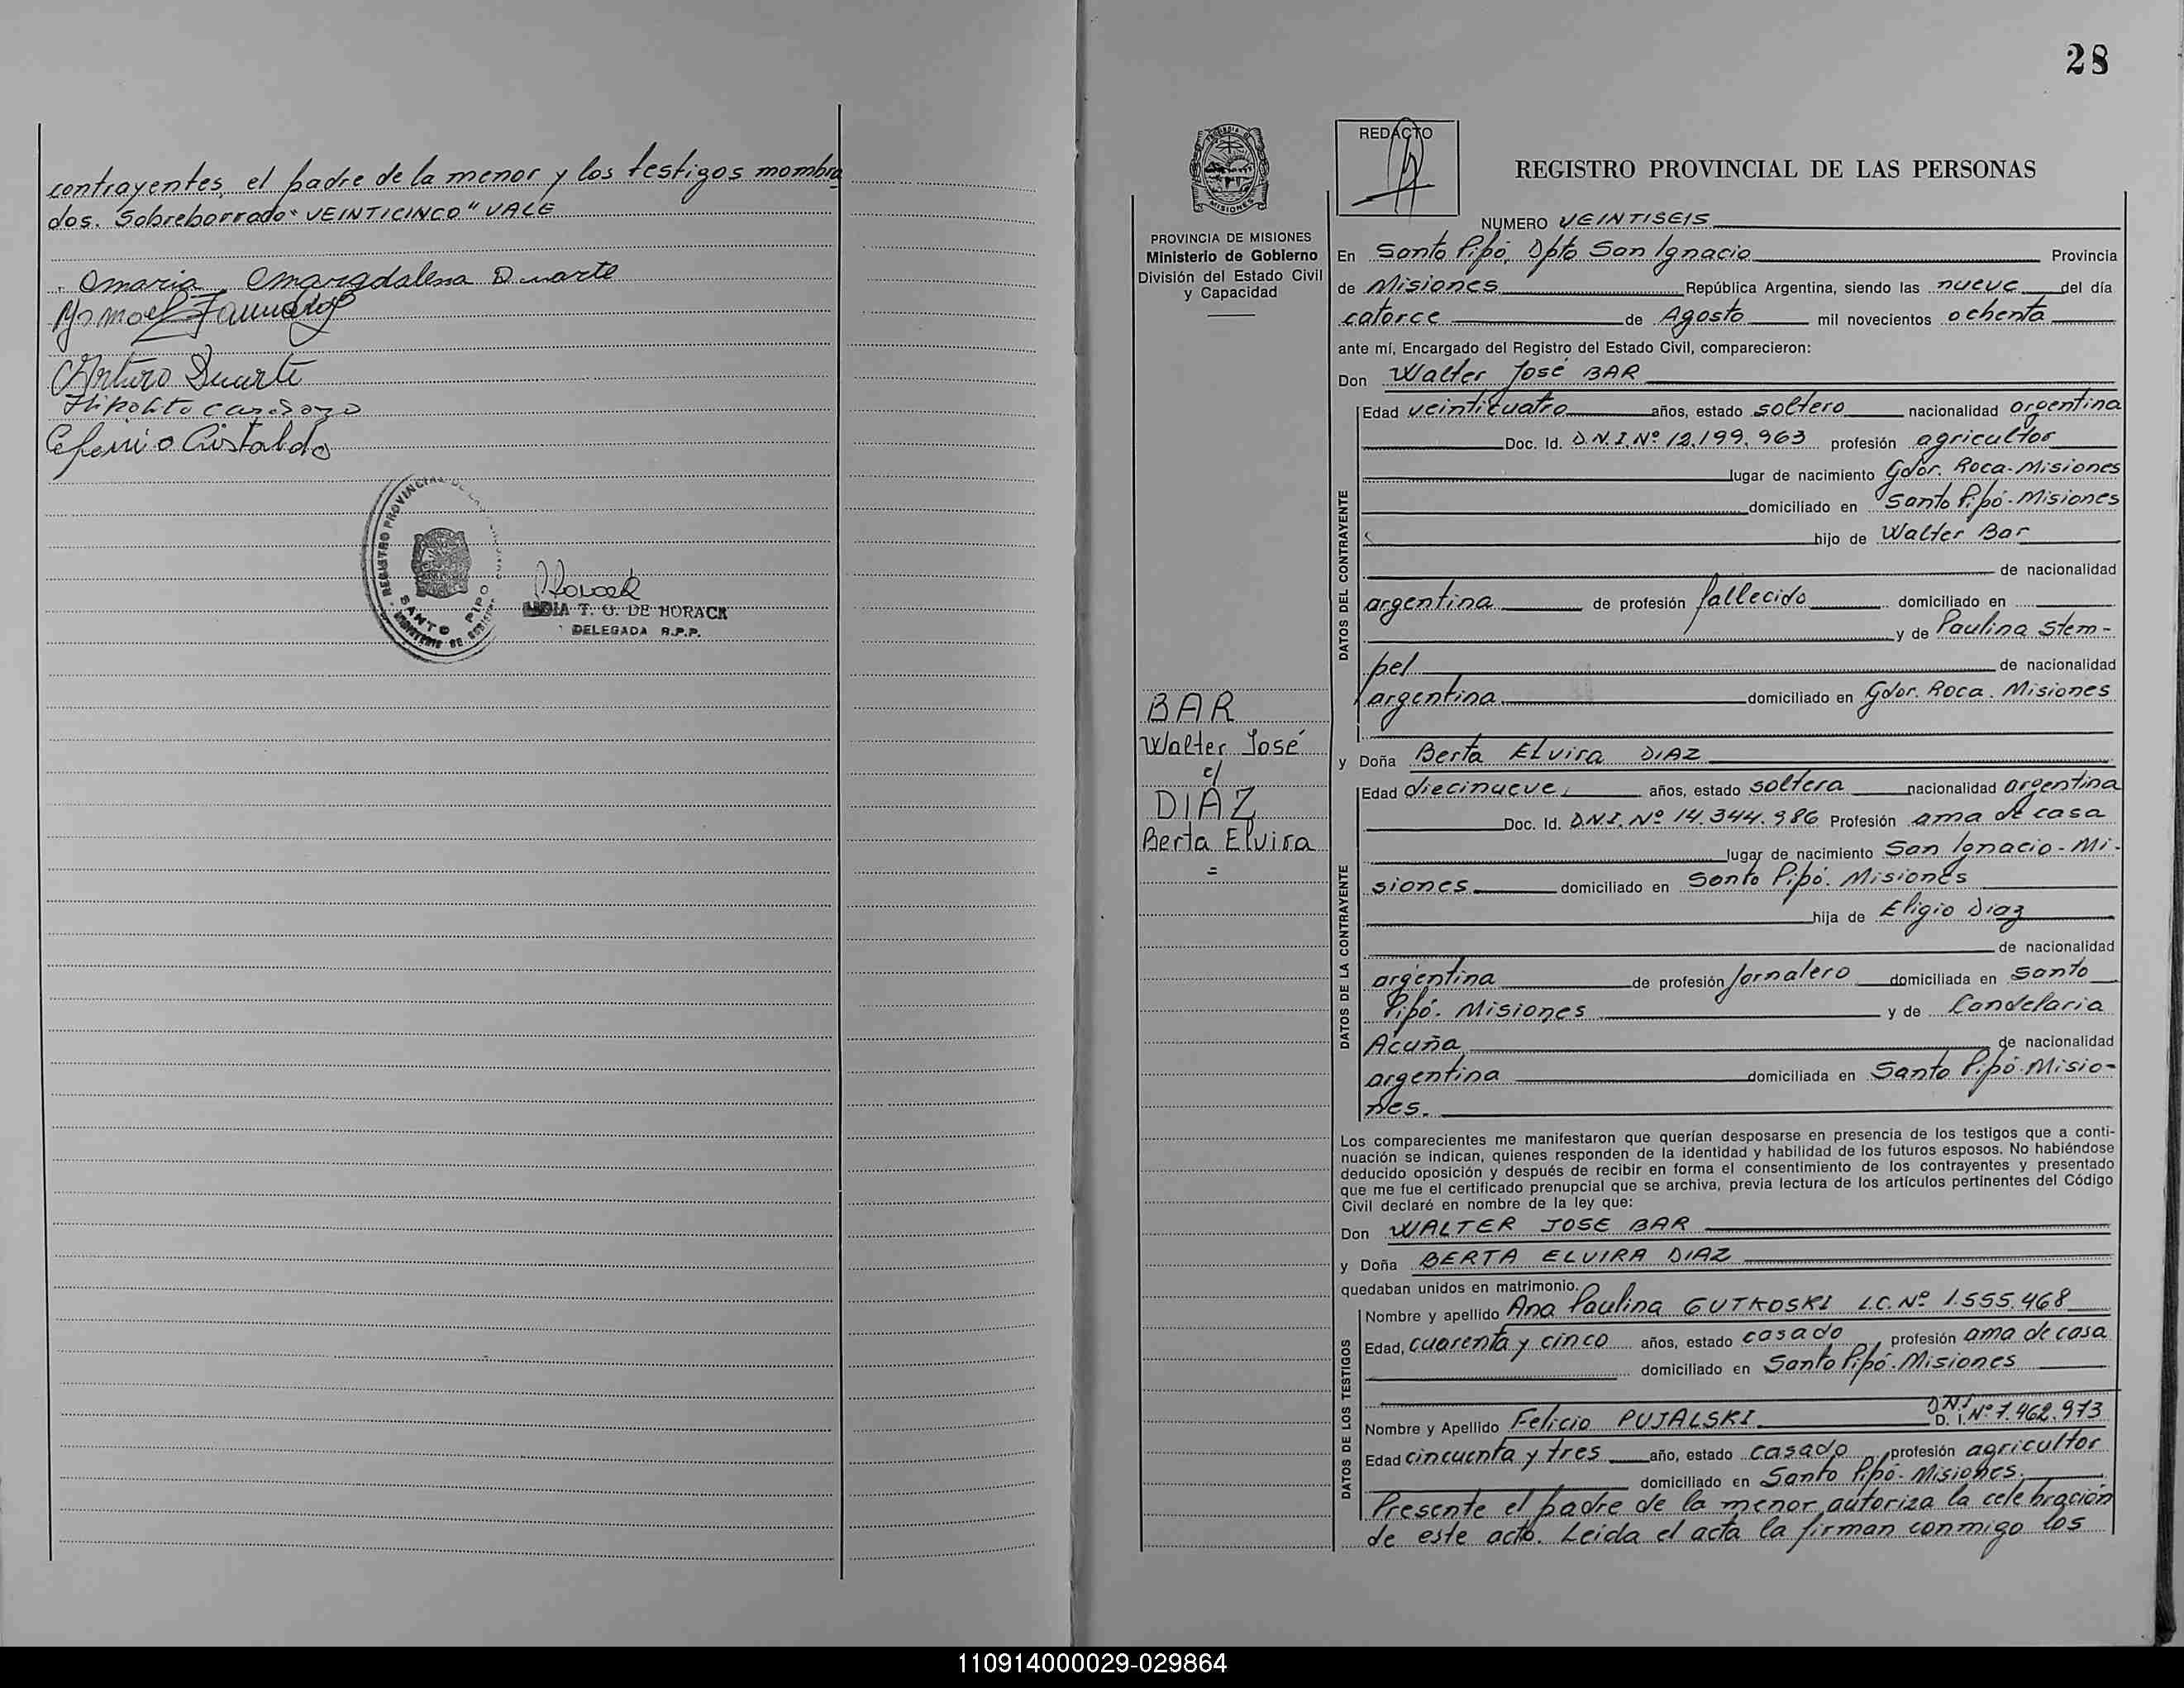 contrayentes, el padre de la menor y los testigos nombra
dos. Sobreborrado "VEINTICINCO" VALE
Maria Magdalena Duarte
Arturo Duarte
Hipolito Cardozo
Ceferino Cristaldo
REGISTRO PROVINCIAL DE LAS
SANTO PIPO
MINISTERIO DE GOBIERNO
LIDIA T. G. DE HORACK
DELEGADA R.P.P.
28
PROVINCIA DE MISIONES
Ministerio de Gobierno
División del Estado Civil
y Capacidad
BAR
Walter José
c/
DIAZ
Berta Elvira
=
REDACTO
REGISTRO PROVINCIAL DE LAS PERSONAS
NUMERO VEINTISEIS
En Santo Pipó, Dpto San Ignacio Provincia
de Misiones República Argentina, siendo las nueve del día
catorce de Agosto mil novecientos ochenta
ante mí, Encargado del Registro del Estado Civil, comparecieron:
Don Walter José BAR
DATOS DEL CONTRAYENTE
Edad veinticuatro años, estado soltero nacionalidad argentina
Doc. Id. D.N.I. Nº 12.199.963 profesión agricultor
lugar de nacimiento Gdor. Roca-Misiones
domiciliado en Santo Pipó-Misiones
hijo de Walter Bar
de nacionalidad
argentina de profesión fallecido domiciliado en
y de Paulina Stem-
pel de nacionalidad
argentina domiciliado en Gdor. Roca. Misiones
y Doña Berta Elvira DIAZ
DATOS DE LA CONTRAYENTE
Edad diecinueve, años, estado soltera nacionalidad argentina
Doc. Id. D.N.I. Nº 14.344.986 Profesión ama de casa
lugar de nacimiento San Ignacio-Mi-
siones domiciliado en Santo Pipó. Misiones
hija de Eligio Diaz
de nacionalidad
argentina de profesión Jornalero domiciliada en Santo
Pipó. Misiones y de Candelaria
Acuña de nacionalidad
argentina domiciliada en Santo Pipó-Misio-
nes.
Los comparecientes me manifestaron que querían desposarse en presencia de los testigos que a conti-
nuación se indican, quienes responden de la identidad y habilidad de los futuros esposos. No habiéndose
deducido oposición y después de recibir en forma el consentimiento de los contrayentes y presentado
que me fue el certificado prenupcial que se archiva, previa lectura de los artículos pertinentes del Código
Civil declaré en nombre de la ley que:
Don WALTER JOSE BAR
y Doña BERTA ELVIRA DIAZ
quedaban unidos en matrimonio.
DATOS DE LOS TESTIGOS
Nombre y apellido Ana Paulina GUTKOSKI L.C. Nº 1.555.468
Edad, cuarenta y cinco años, estado casado profesión ama de casa
domiciliado en Santo Pipó-Misiones
Nombre y Apellido Felicio PUJALSKI D.N.I. D. I. Nº 7.462.973
Edad cincuenta y tres año, estado casado profesión agricultor
domiciliado en Santo Pipó-Misiones.
Presente el padre de la menor autoriza la celebración
de este acto. Leida el acta la firman conmigo los
110914000029-029864